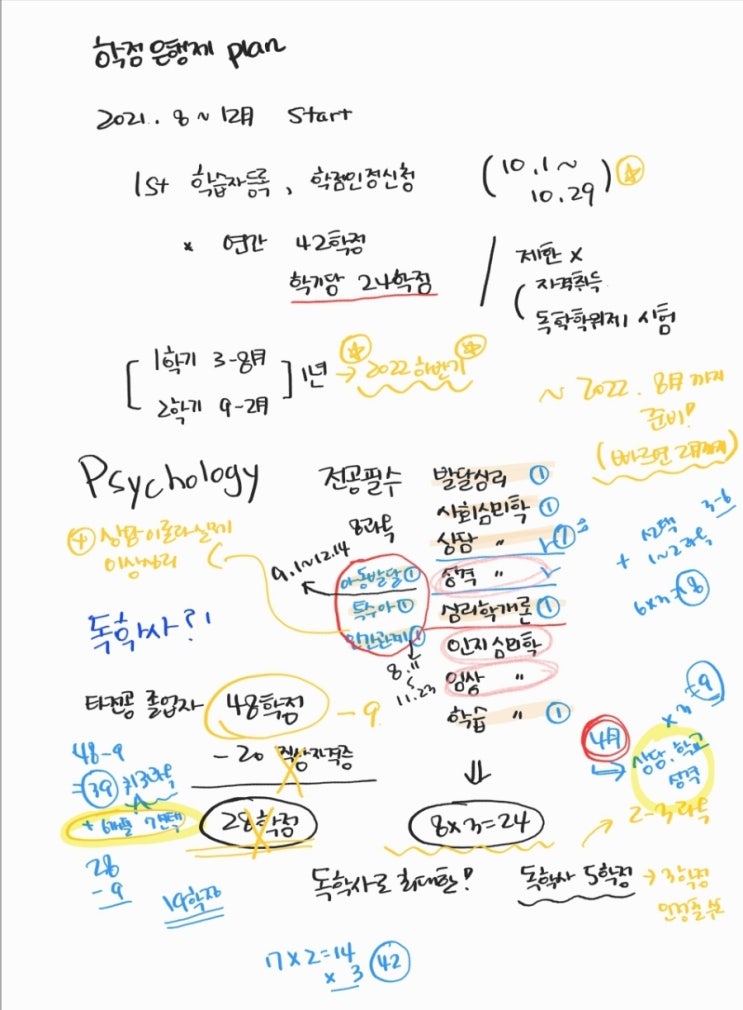 학점은행제 plan
2021. 8 ~ 12月 Start
1st 학습자등록, 학점인정신청 (10.1 ~
10.29)
* 연간 42학점
학기당 24학점
제한 x
자격취득
독학학위제 시험
1학기 3-8月
2학기 9-2月
1년
→ 2022 하반기
~ 2022. 8月까지
준비!
(빠르면 2月까지)
Psychology
전공필수
8과목
발달심리 ①
사회심리학 ①
상담 〃 ①
성격 〃
심리학개론 ①
인지심리학
임상 〃
학습 〃 ①
상담이론과실제
이상심리
9.1~12.14
아동발달 ①
특수아 ①
인간관계 ①
8.11
~
11.23
3-6
선택
+ 1~2과목
6x3=18
독학사?!
타전공 졸업자 48학점 - 9
- 20 직상자격증
28학점
48-9
=39 13과목
+ 6필 7선택
28
-9
19학점
⇓
8x3=24
x3=9
4月
상담, 학교
성격
2-3과목
독학사로 최대한!
독학사 5학점 → 3학점
7x2=14
x 3
42